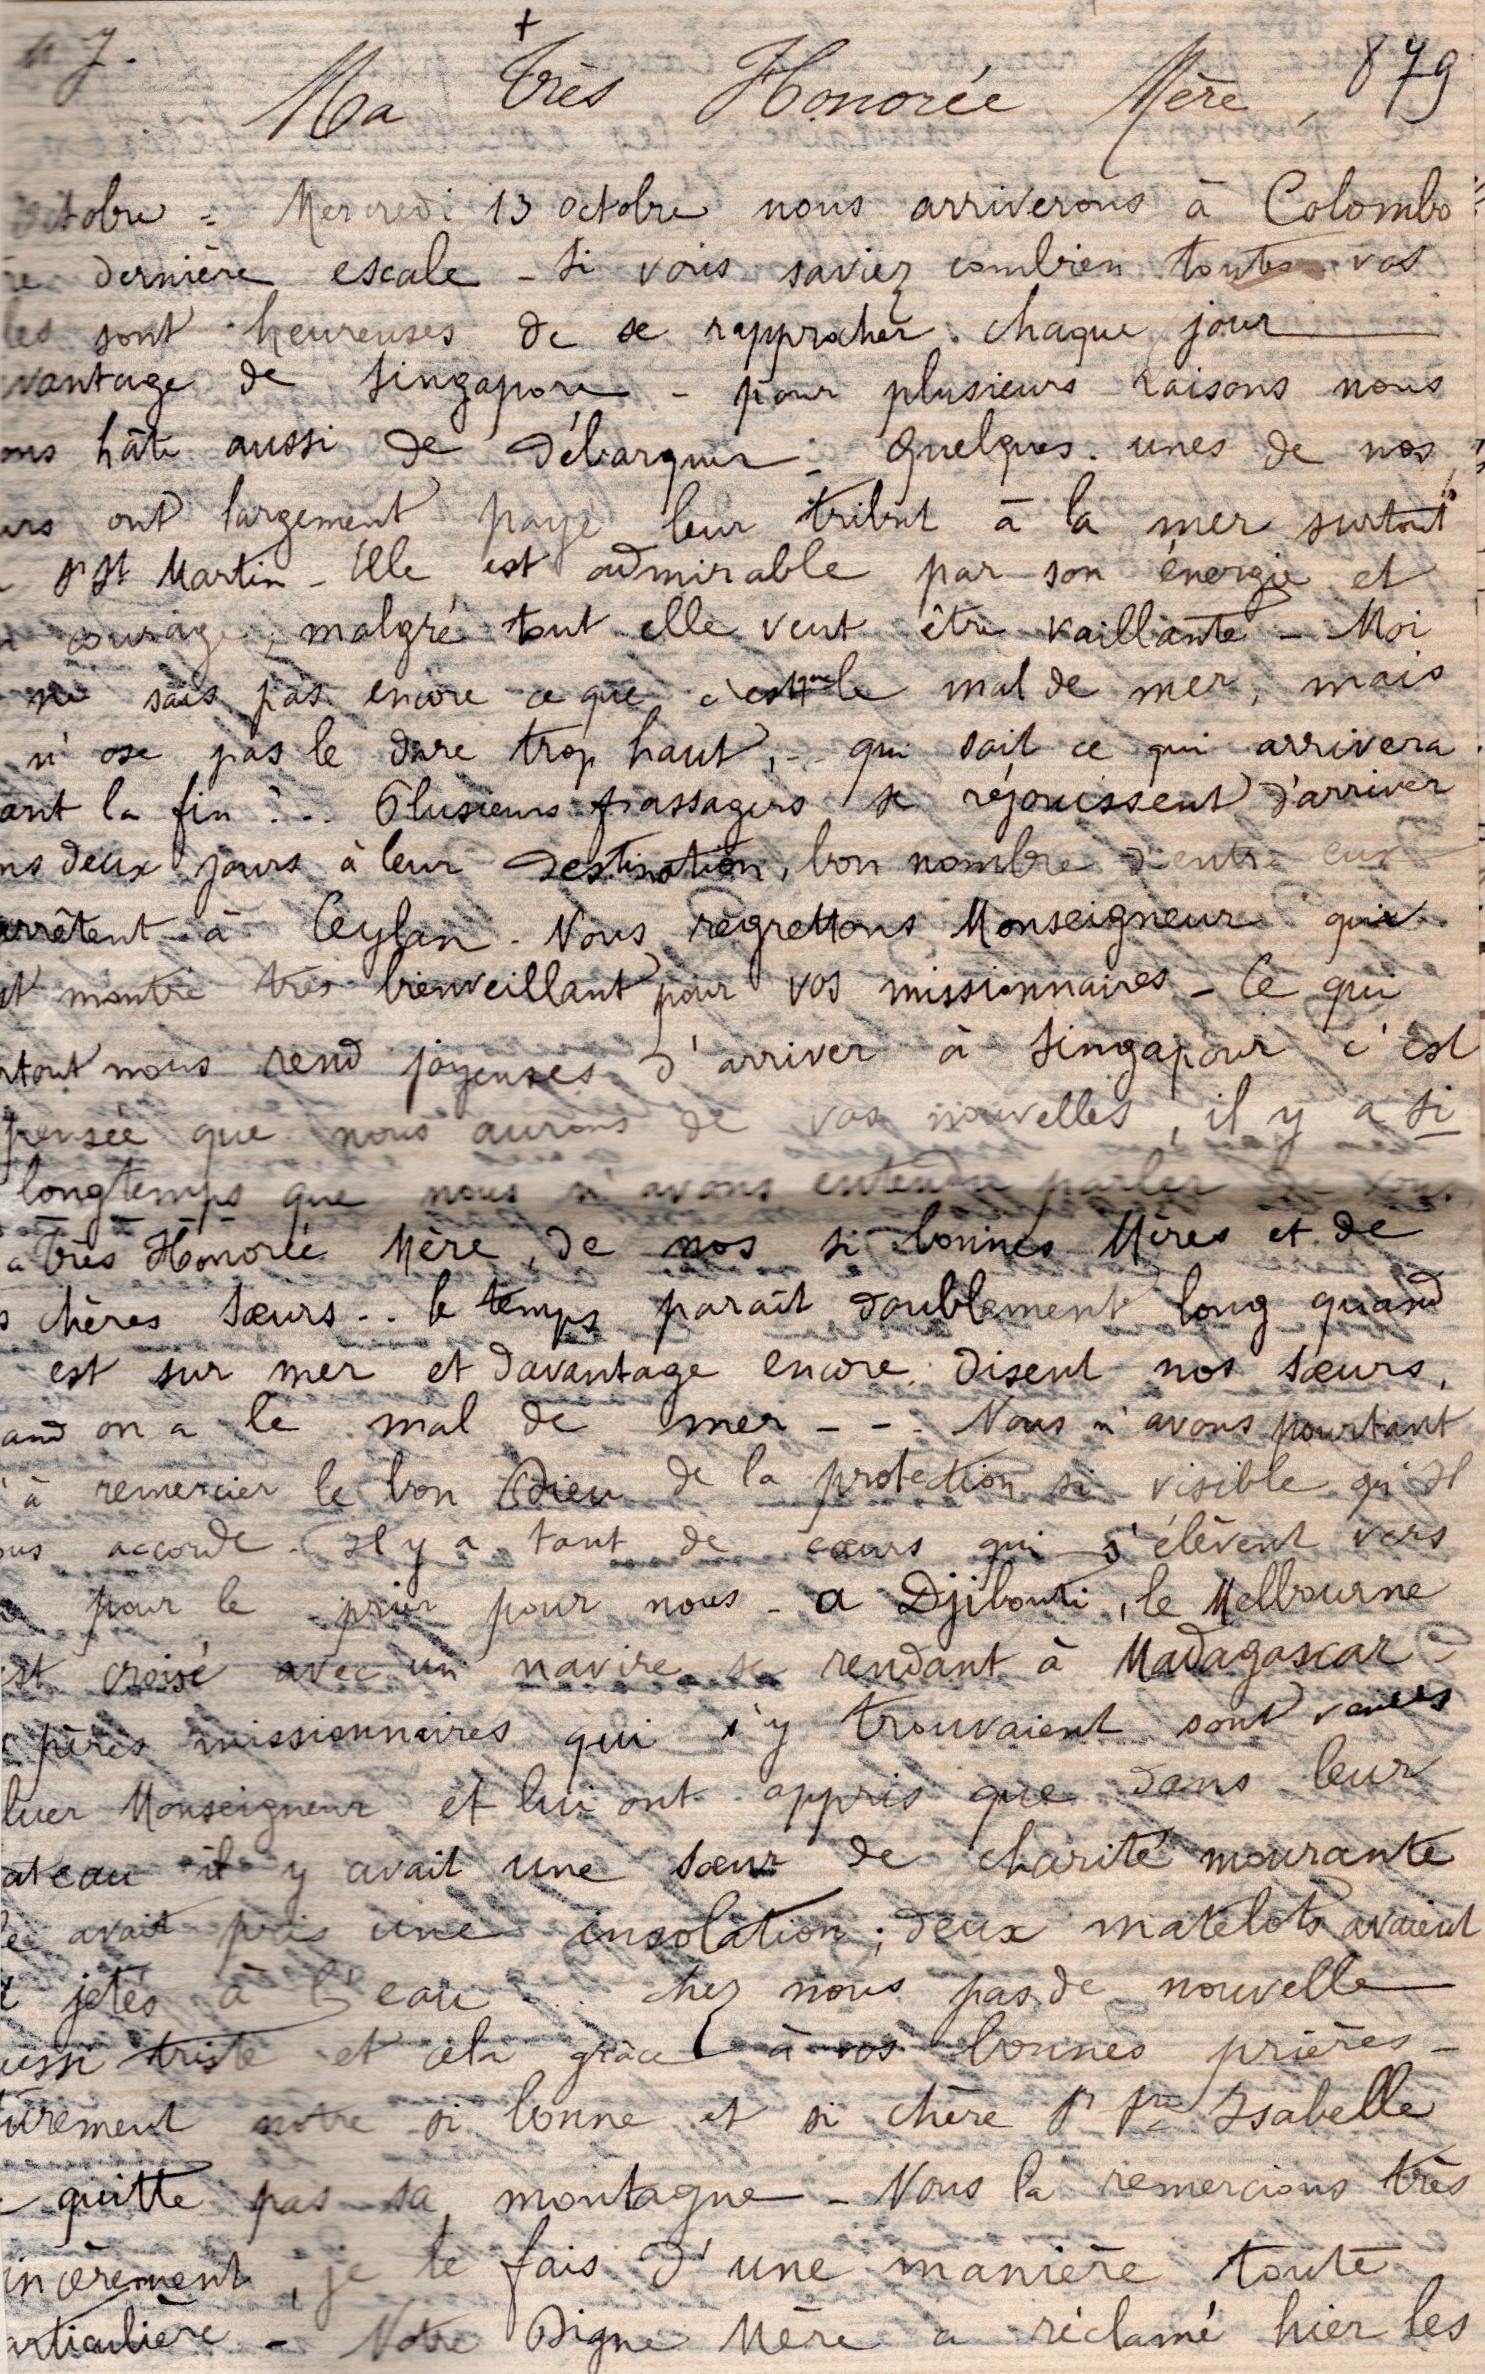 +
879
Ma Très Honorée Mère,
octobre = Mercredi 13 octobre nous arriverons à Colombo
dernière escale - si vous saviez combien toutes vos
les sont heureuses de se rapprocher chaque jour
vantage de Singapore - pour plusieurs raisons nous
ons hâte aussi de débarquer : Quelques-unes de nos
urs ont largement payé leur tribut à la mer surtout
Sr St Martin - Elle est admirable par son énergie et
courage, malgré tout elle veut être vaillante - Moi
ne sais pas encore ce que c'est que le mal de mer, mais
n'ose pas le dire trop haut, - qui sait ce qui arrivera
ant la fin ? .. Plusieurs passagers se réjouissent d'arriver
ns deux jours à leur destination, bon nombre d'entre eux
arrêtent à Ceylan - Nous regrettons Monseigneur qui
st montré très bienveillant pour vos missionnaires - Ce qui
rtout nous rend joyeuses d'arriver à Singapour c'est
pensée que nous aurons de vos nouvelles, il y a si
longtemps que nous n'avons entendu parler de vous,
a très Honorée Mère, de nos si bonnes Mères et de
s chères sœurs .. le temps paraît doublement long quand
est sur mer et davantage encore, disent nos sœurs,
and on a le mal de mer - - . Nous n'avons pourtant
'à remercier le bon Dieu de la protection si visible qu'Il
ous accorde - Il y a tant de cœurs qui s'élèvent vers
pour le prier pour nous - a Djibouti, le Melbourne
est croisé avec un navire se rendant à Madagascar -
s pères missionnaires qui s'y trouvaient sont venus
luer Monseigneur et lui ont appris que dans leur
ateau il y avait une sœur de charité mourante
le avait pris une insolation ; deux matelots avaient
é jetés à l'eau ... chez nous pas de nouvelle
ussi triste et cela grâce à vos bonnes prières -
ûrement notre si bonne et si chère Sr Isabelle
quitte pas sa montagne - Nous la remercions très
incèrement, je le fais d'une manière toute
articulière - Notre Digne Mère a réclamé hier les